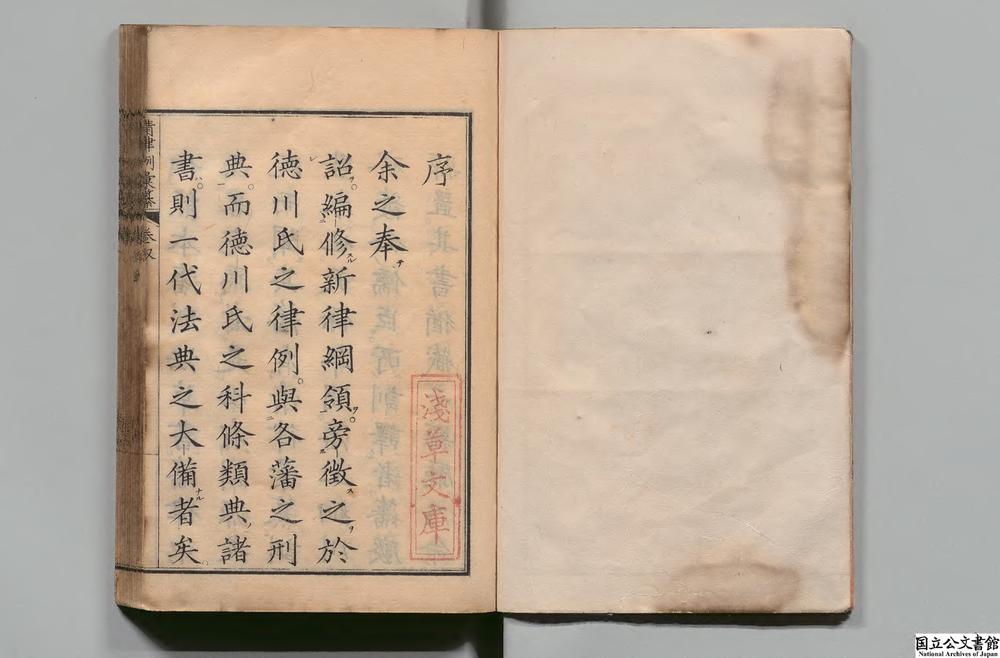 序
余之奉
詔編修新律綱領旁徴之於
徳川氏之律例與各藩之刑
典而徳川氏之科條類典諸
書則一代法典之大備者矣
淺草文庫
律例彙纂
国立公文書館
National Archives of Japan